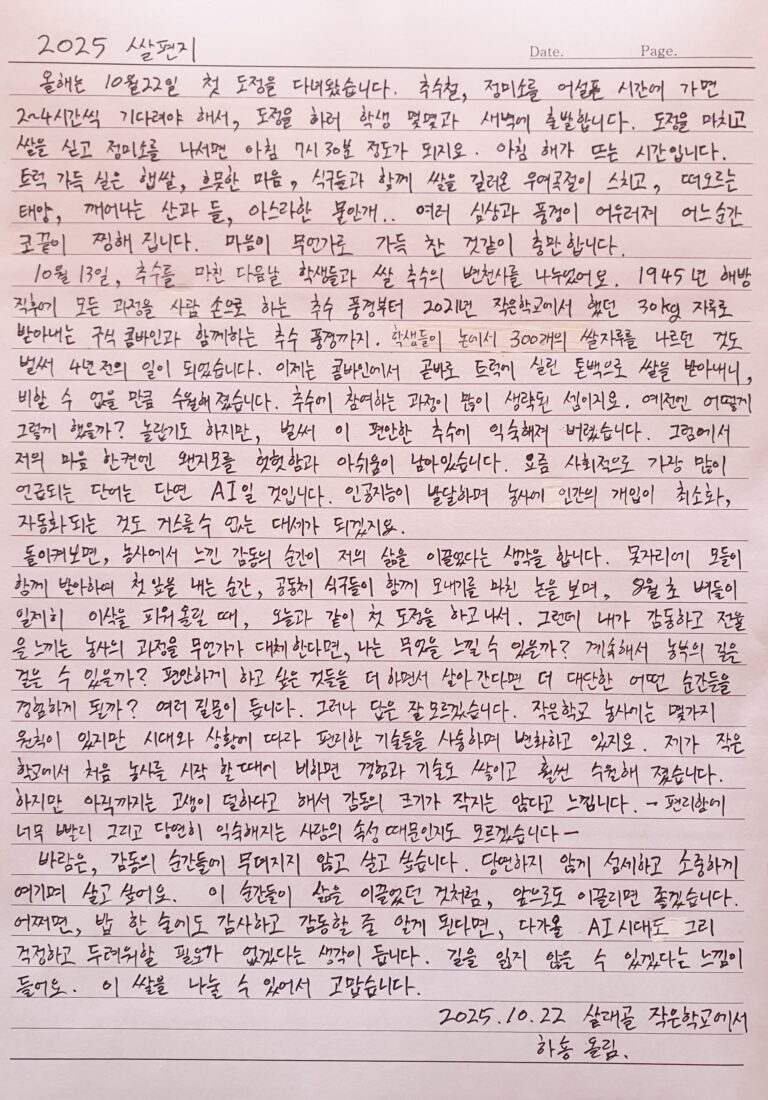 2025 쌀편지
Date. Page.
올해는 10월22일 첫 도정을 다녀왔습니다. 추수철, 정미소를 어설픈 시간에 가면
2~4시간씩 기다려야 해서, 도정을 하러 학생 몇몇과 새벽에 출발합니다. 도정을 마치고
쌀을 싣고 정미소를 나서면 아침 7시 30분 정도가 되지요. 아침 해가 뜨는 시간입니다.
트럭 가득 실은 햅쌀, 흐뭇한 마음, 식구들과 함께 쌀을 길러온 우여곡절이 스치고, 떠오르는
태양, 깨어나는 산과 들, 아스라한 물안개.. 여러 심상과 풍경이 어우러져 어느순간
코끝이 찡해 집니다. 마음이 무언가로 가득 찬 것같이 충만합니다.
10월 13일, 추수를 마친 다음날 학생들과 쌀 추수의 변천사를 나누었어요. 1945년 해방
직후에 모든 과정을 사람 손으로 하는 추수 풍경부터 2021년 작은학교에서 했던 30kg 자루로
받아내는 구식 콤바인과 함께하는 추수 풍경까지. 학생들이 논에서 300개의 쌀자루를 나르던 것도
벌써 4년전의 일이 되었습니다. 이제는 콤바인에서 곧바로 트럭에 실린 톤백으로 쌀을 받아내니,
비할 수 없을 만큼 수월해졌습니다. 추수에 참여하는 과정이 많이 생략된 셈이지요. 예전엔 어떻게
그렇게 했을까? 놀랍기도 하지만, 벌써 이 편안한 추수에 익숙해져 버렸습니다. 그럼에서
저의 마음 한켠엔 왠지모를 헛헛함과 아쉬움이 남아있습니다. 요즘 사회적으로 가장 많이
언급되는 단어는 단연 AI일 것입니다. 인공지능이 발달하며 농사에 인간의 개입이 최소화,
자동화되는 것도 거스를 수 없는 대세가 되겠지요.
돌이켜보면, 농사에서 느낀 감동의 순간이 저의 삶을 이끌었다는 생각을 합니다. 못자리에 모들이
함께 발아하여 첫 잎을 내는 순간, 공동체 식구들이 함께 모내기를 마친 논을 보며, 8월 초 벼들이
일제히 이삭을 피워올릴 때, 오늘과 같이 첫 도정을 하고 나서. 그런데 내가 감동하고 전율
을 느끼는 농사의 과정을 무언가가 대체한다면, 나는 무엇을 느낄 수 있을까? 계속해서 농부의 길을
걸을 수 있을까? 편안하게 하고 싶은 것들을 더 하면서 살아 간다면 더 대단한 어떤 순간들을
경험하게 될까? 여러 질문이 듭니다. 그러나 답은 잘 모르겠습니다. 작은학교 농사에는 몇가지
원칙이 있지만 시대와 상황에 따라 편리한 기술들을 사용하며 변화하고 있지요. 제가 작은
학교에서 처음 농사를 시작 할 때에 비하면 경험과 기술도 쌓이고 훨씬 수월해 졌습니다.
하지만 아직까지는 고생이 덜하다고 해서 감동의 크기가 작지는 않다고 느낍니다. - 편리함에
너무 빨리 그리고 당연히 익숙해지는 사람의 속성 때문인지도 모르겠습니다 -
바람은, 감동의 순간들에 무뎌지지 않고 살고 싶습니다. 당연하지 않게 섬세하고 소중하게
여기며 살고 싶어요. 이 순간들이 삶을 이끌었던 것처럼, 앞으로도 이끌리면 좋겠습니다.
어쩌면, 밥 한 술에도 감사하고 감동할 줄 알게 된다면, 다가올 AI시대도 그리
걱정하고 두려워할 필요가 없겠다는 생각이 듭니다. 길을 잃지 않을 수 있겠다는 느낌이
들어요. 이 쌀을 나눌 수 있어서 고맙습니다.
2025.10.22 살래골 작은학교에서
하송 올림.